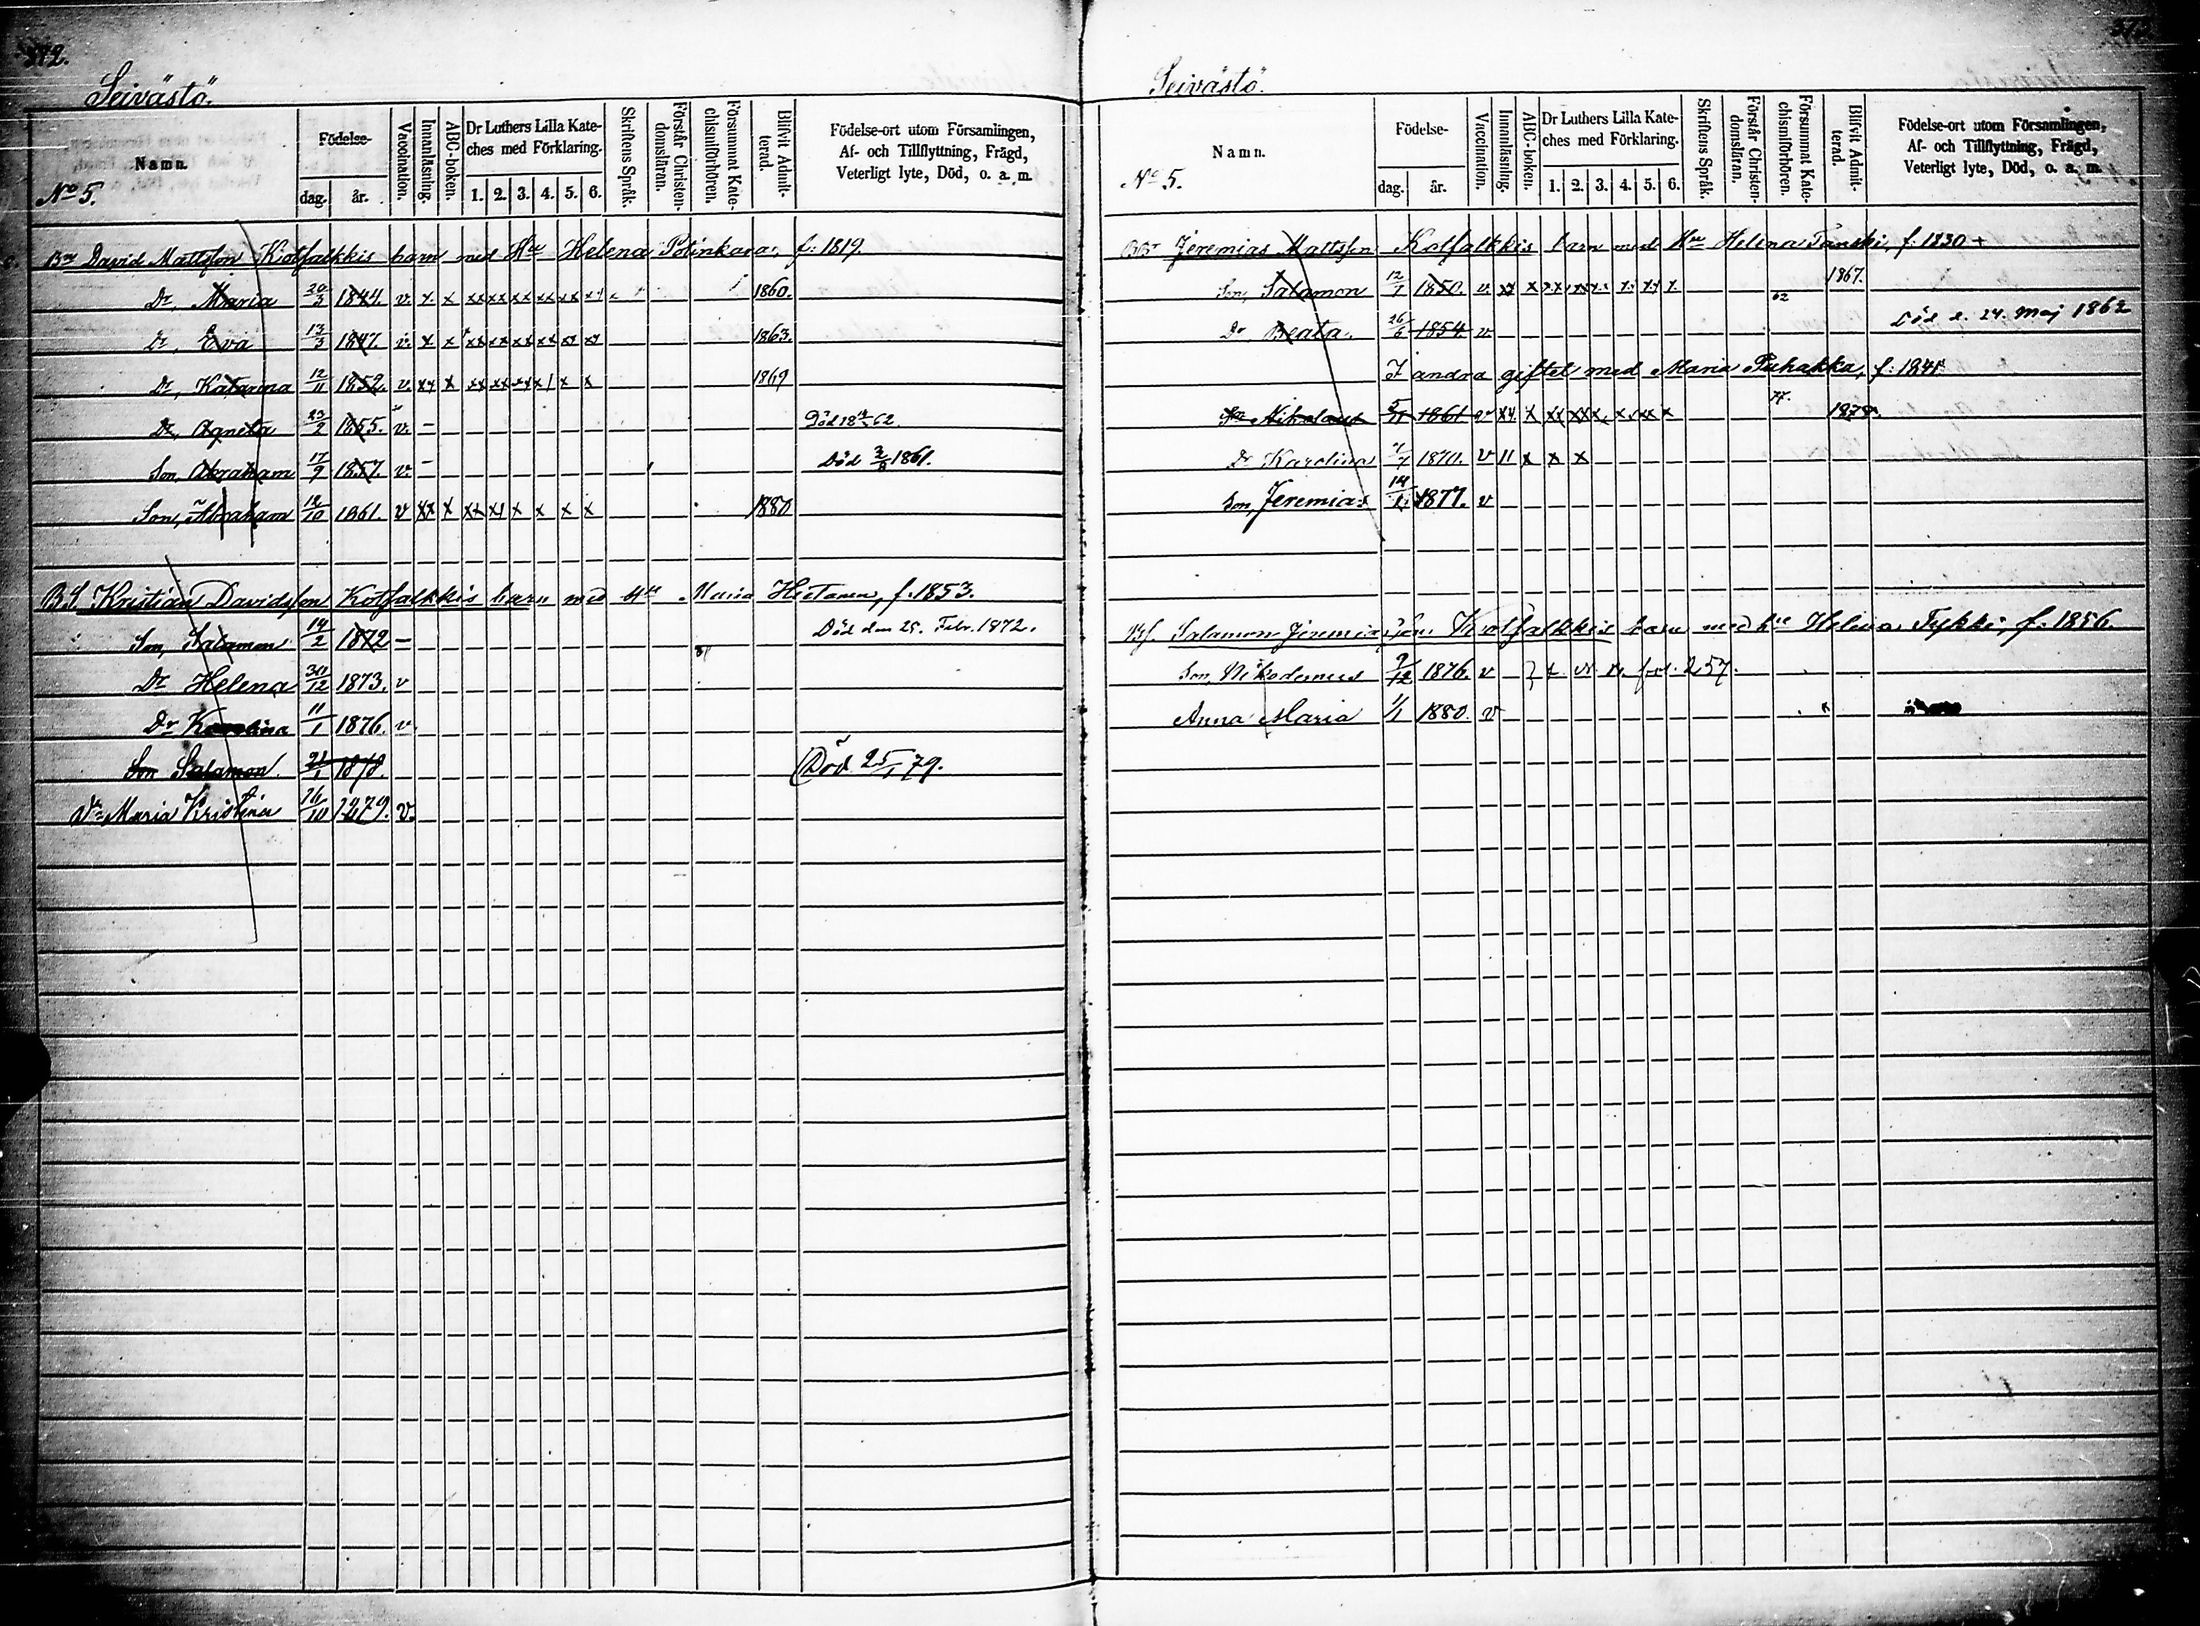 372.
Seivästö.
Namn.
No 5.
Födelse-
dag.
år.
Vaccination.
Innanläsning.
ABC-boken.
Dr Luthers Lilla Kate-
ches med Förklaring.
1. 2. 3. 4. 5. 6.
Skriftens Språk.
Förstår Christen-
domsläran.
Försummat Kate-
chismiförhören.
Blifvit Admit-
terad.
Födelse-ort utom Församlingen,
Af- och Tillflyttning, Frägd,
Veterligt lyte, Död, o. a. m.
Bn David Mattsson Kotsalkkis barn med Hu Helena Potinkara, f: 1819.
Dr, Maria 20/3 1844. v. x x xx xx xx xx xx 1860.
Dr, Eva 13/3 1847. v. x x xx xx xx xx xx xx 1863.
Dr, Katarina 12/11 1852. v. xx x xx xx xx x x x 1869
Dr, Agneta 23/2 1855. v. – Död 62.
Son, Abraham 17/9 1857. v. – Död 1861.
Son, Abraham 12/10 1861. v xx x xx x x x x x 1880
BS Kristian Davidsson Kotsalkkis barn med Hu Maria Hietanen, f. 1853.
Son, Salamon 14/2 1872 – Död den 25. Febr. 1872.
Dr Helena 31/12 1873. v
Dr Karolina 11/1 1876. v.
Son Salamon. 21/1 1878. Död 25/1 79.
Dr Maria Kristina 16/10 1879. v.
Seivästö.
Namn.
No 5.
Födelse-
dag.
år.
Vaccination.
Innanläsning.
ABC-boken.
Dr Luthers Lilla Kate-
ches med Förklaring.
1. 2. 3. 4. 5. 6.
Skriftens Språk.
Förstår Christen-
domsläran.
Försummat Kate-
chismiförhören.
Blifvit Admit-
terad.
Födelse-ort utom Församlingen,
Af- och Tillflyttning, Frägd,
Veterligt lyte, Död, o. a. m.
Jeremias Mattsson Kotsalkkis barn med Hu Helena Tanski, f. 1830 +
Son, Salamon 12/7 1850. v xx x xx xx x x x x 1867.
Dr Beata. 26/6 1854. v 62 Död d. 24. Maj 1862
I andra giftet med Maria Puhakka, f: 1841
Son Nikolaus 5/11 1861 v xx x xx xx x x x x 77. 1878.
Dr Karolina 1870. v 11 x x x
Son, Jeremias 14/1 1877. v
Bs. Salamon Jeremiasson Kotsalkkis barn med hu Helena Tykki, f. 1856.
Son, Nikodemus 9/12 1876. v fol. 257.
Anna Maria 1/1 1880. v